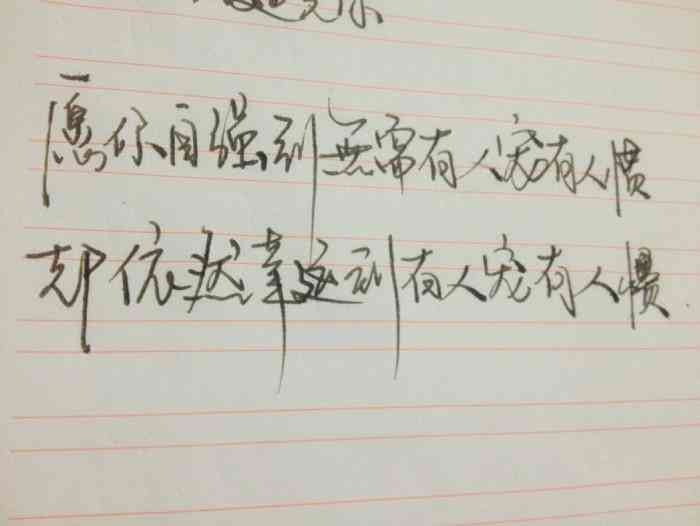 愿你自强到無需有人宠有人惯
却依然幸运到有人宠有人惯